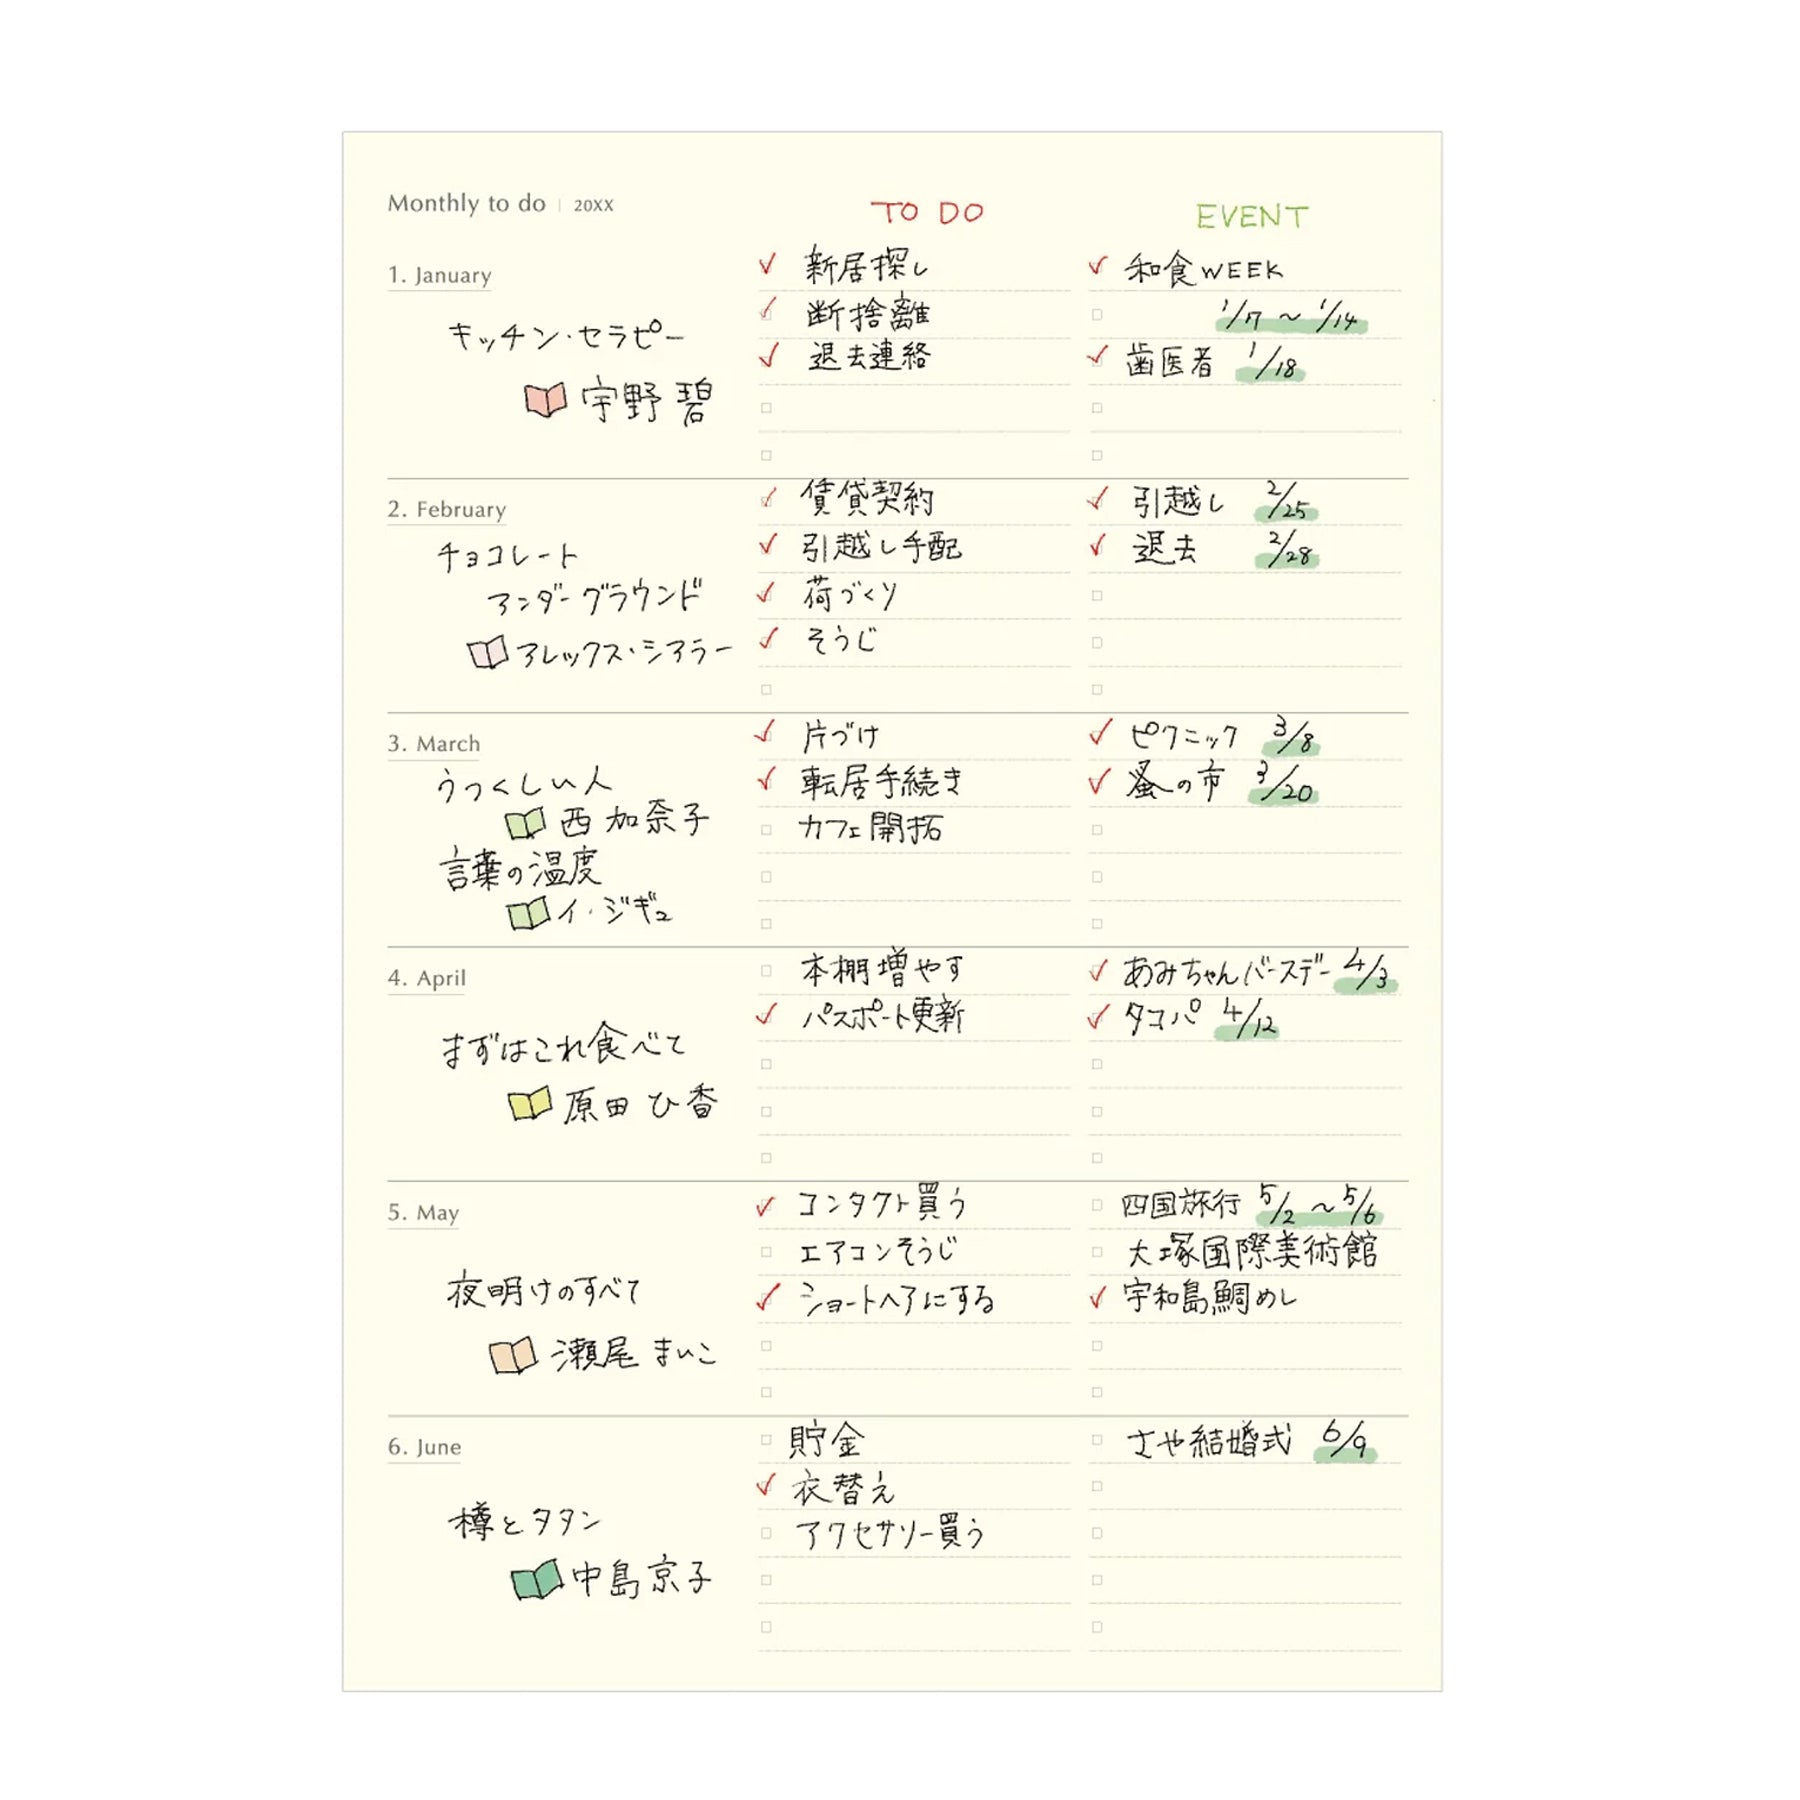 Monthly to do | 20XX
TO DO
EVENT
1. January
キッチン・セラピー
宇野 碧
新居探し
断捨離
退去連絡
和食WEEK
1/7 ～ 1/14
歯医者 1/18
2. February
チョコレート
アンダーグラウンド
アレックス・シアラー
賃貸契約
引越し手配
荷づくり
そうじ
引越し 2/25
退去 2/28
3. March
うつくしい人
西 加奈子
言葉の温度
イ・ジギュ
片づけ
転居手続き
カフェ開拓
ピクニック 3/8
蚤の市 3/20
4. April
まずはこれ食べて
原田 ひ香
本棚増やす
パスポート更新
あみちゃんバースデー 4/3
タコパ 4/12
5. May
夜明けのすべて
瀬尾 まいこ
コンタクト買う
エアコンそうじ
ショートヘアにする
四国旅行 5/2 ～ 5/6
大塚国際美術館
宇和島鯛めし
6. June
樽とタタン
中島京子
貯金
衣替え
アクセサリー買う
さや結婚式 6/9